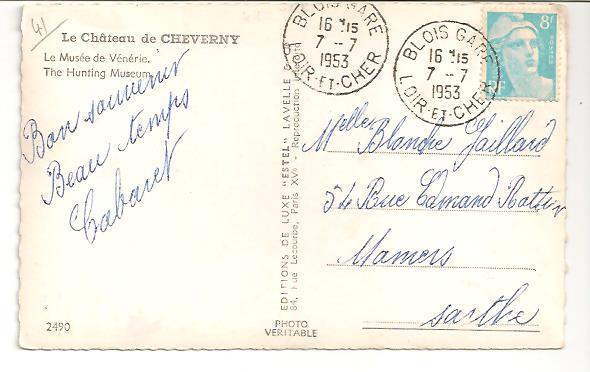 41
Le Château de CHEVERNY
Le Musée de Vénérie.
The Hunting Museum.
Bon souvenir
Beau temps
Cabaret
2490
EDITIONS DE LUXE "ESTEL" LAVELLE
84, Rue Lecourbe, Paris XVe - Reproduction
PHOTO
VERITABLE
BLOIS GARE
16 H 15
7 - 7
1953
LOIR-ET-CHER
BLOIS GARE
16 H 15
7 - 7
1953
LOIR-ET-CHER
8F
POSTES
Melles Blandre Jaillard
54 Rue Edmond Rottier
Mamers
sarthe